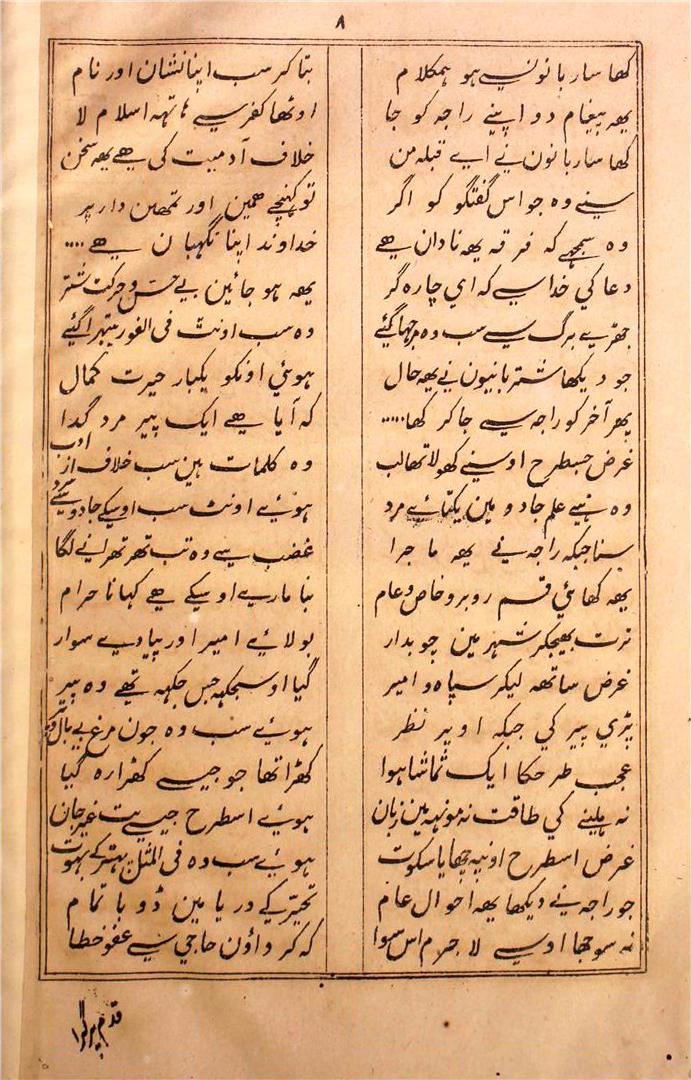 ۸
کہا ساربانونسے ہو ہمکلام بتا کر سب اپنا نشان اور نام
یہہ پیغام دو اپنے راجہ کو جا اوٹھا کفر سے ہاتہہ اسلام لا
کہا ساربانون نے اے قبلہ من خلاف آدمیت کی ہے یہہ سخن
سنے وہ جو اس گفتگو کو اگر تو کہنچے ہمین اور تمہین دار پر
وہ سمجہے کہ فرقہ یہہ نادان ہے خداوند اپنا نگہبان ہے....
دعا کی خدا سے کہ اي چارہ گر یہہ ہو جائین بے حس و حرکت شتر
جھڑے برگ سے سب وہ مرجہا گئے وہ سب اونٹ فی الفور پتہرا گئے
جو دیکھا شتربانیون نے یہہ حال ہوئي اونکو یکبار حیرت کمال
پھر آخر کو راجہ سے جا کر کہا..... کہ آیا ہے ایک پیر مرد گدا
غرض جسطرح اوسنے کھولا تھا لب وہ کلمات ہین سب خلاف از ادب
وہ ہے علم جادو مین یکتائے مرد ہوئے اونٹ سب اوسکے جادو سے سرد
سنا جبکہ راجہ نے یہہ ماجرا غضب سے وہ تب تھرتھرانے لگا
یہہ کھائي قسم روبرو خاص و عام بنا مارے اوسکے ہے کہانا حرام
ترت بھیجکر شہر مین چوبدار بولائے امیر اور پیادے سوار
غرض ساتھہ لیکر سپاہ و امیر گیا اوسجگہہ جس جگہہ تھے وہ پیر
پڑي پیر کي جبکہ اوپر نظر ہوئے سب وہ جون مرغ بے بال و پر
عجب طرحکا ایک تماشا ہوا کھڑا تھا جو جیسے کھڑا رہ گیا
نہ ہلنے کي طاقت نہ مونہہ مین زبان ہوئے اسطرح جیسے بت غیر جان
غرض اسطرح اونپہ چھایا سکوت ہوئے سب وہ فی المثل پتہر کے بہوت
جو راجہ نے دیکھا یہہ احوال عام تحیّر کے دریا مین ڈوبا تمام
نہ سوجھا اوسے لا جرم اس سوا کہ کرواؤن حاجي سے عفو خطا
قدم پر گرا